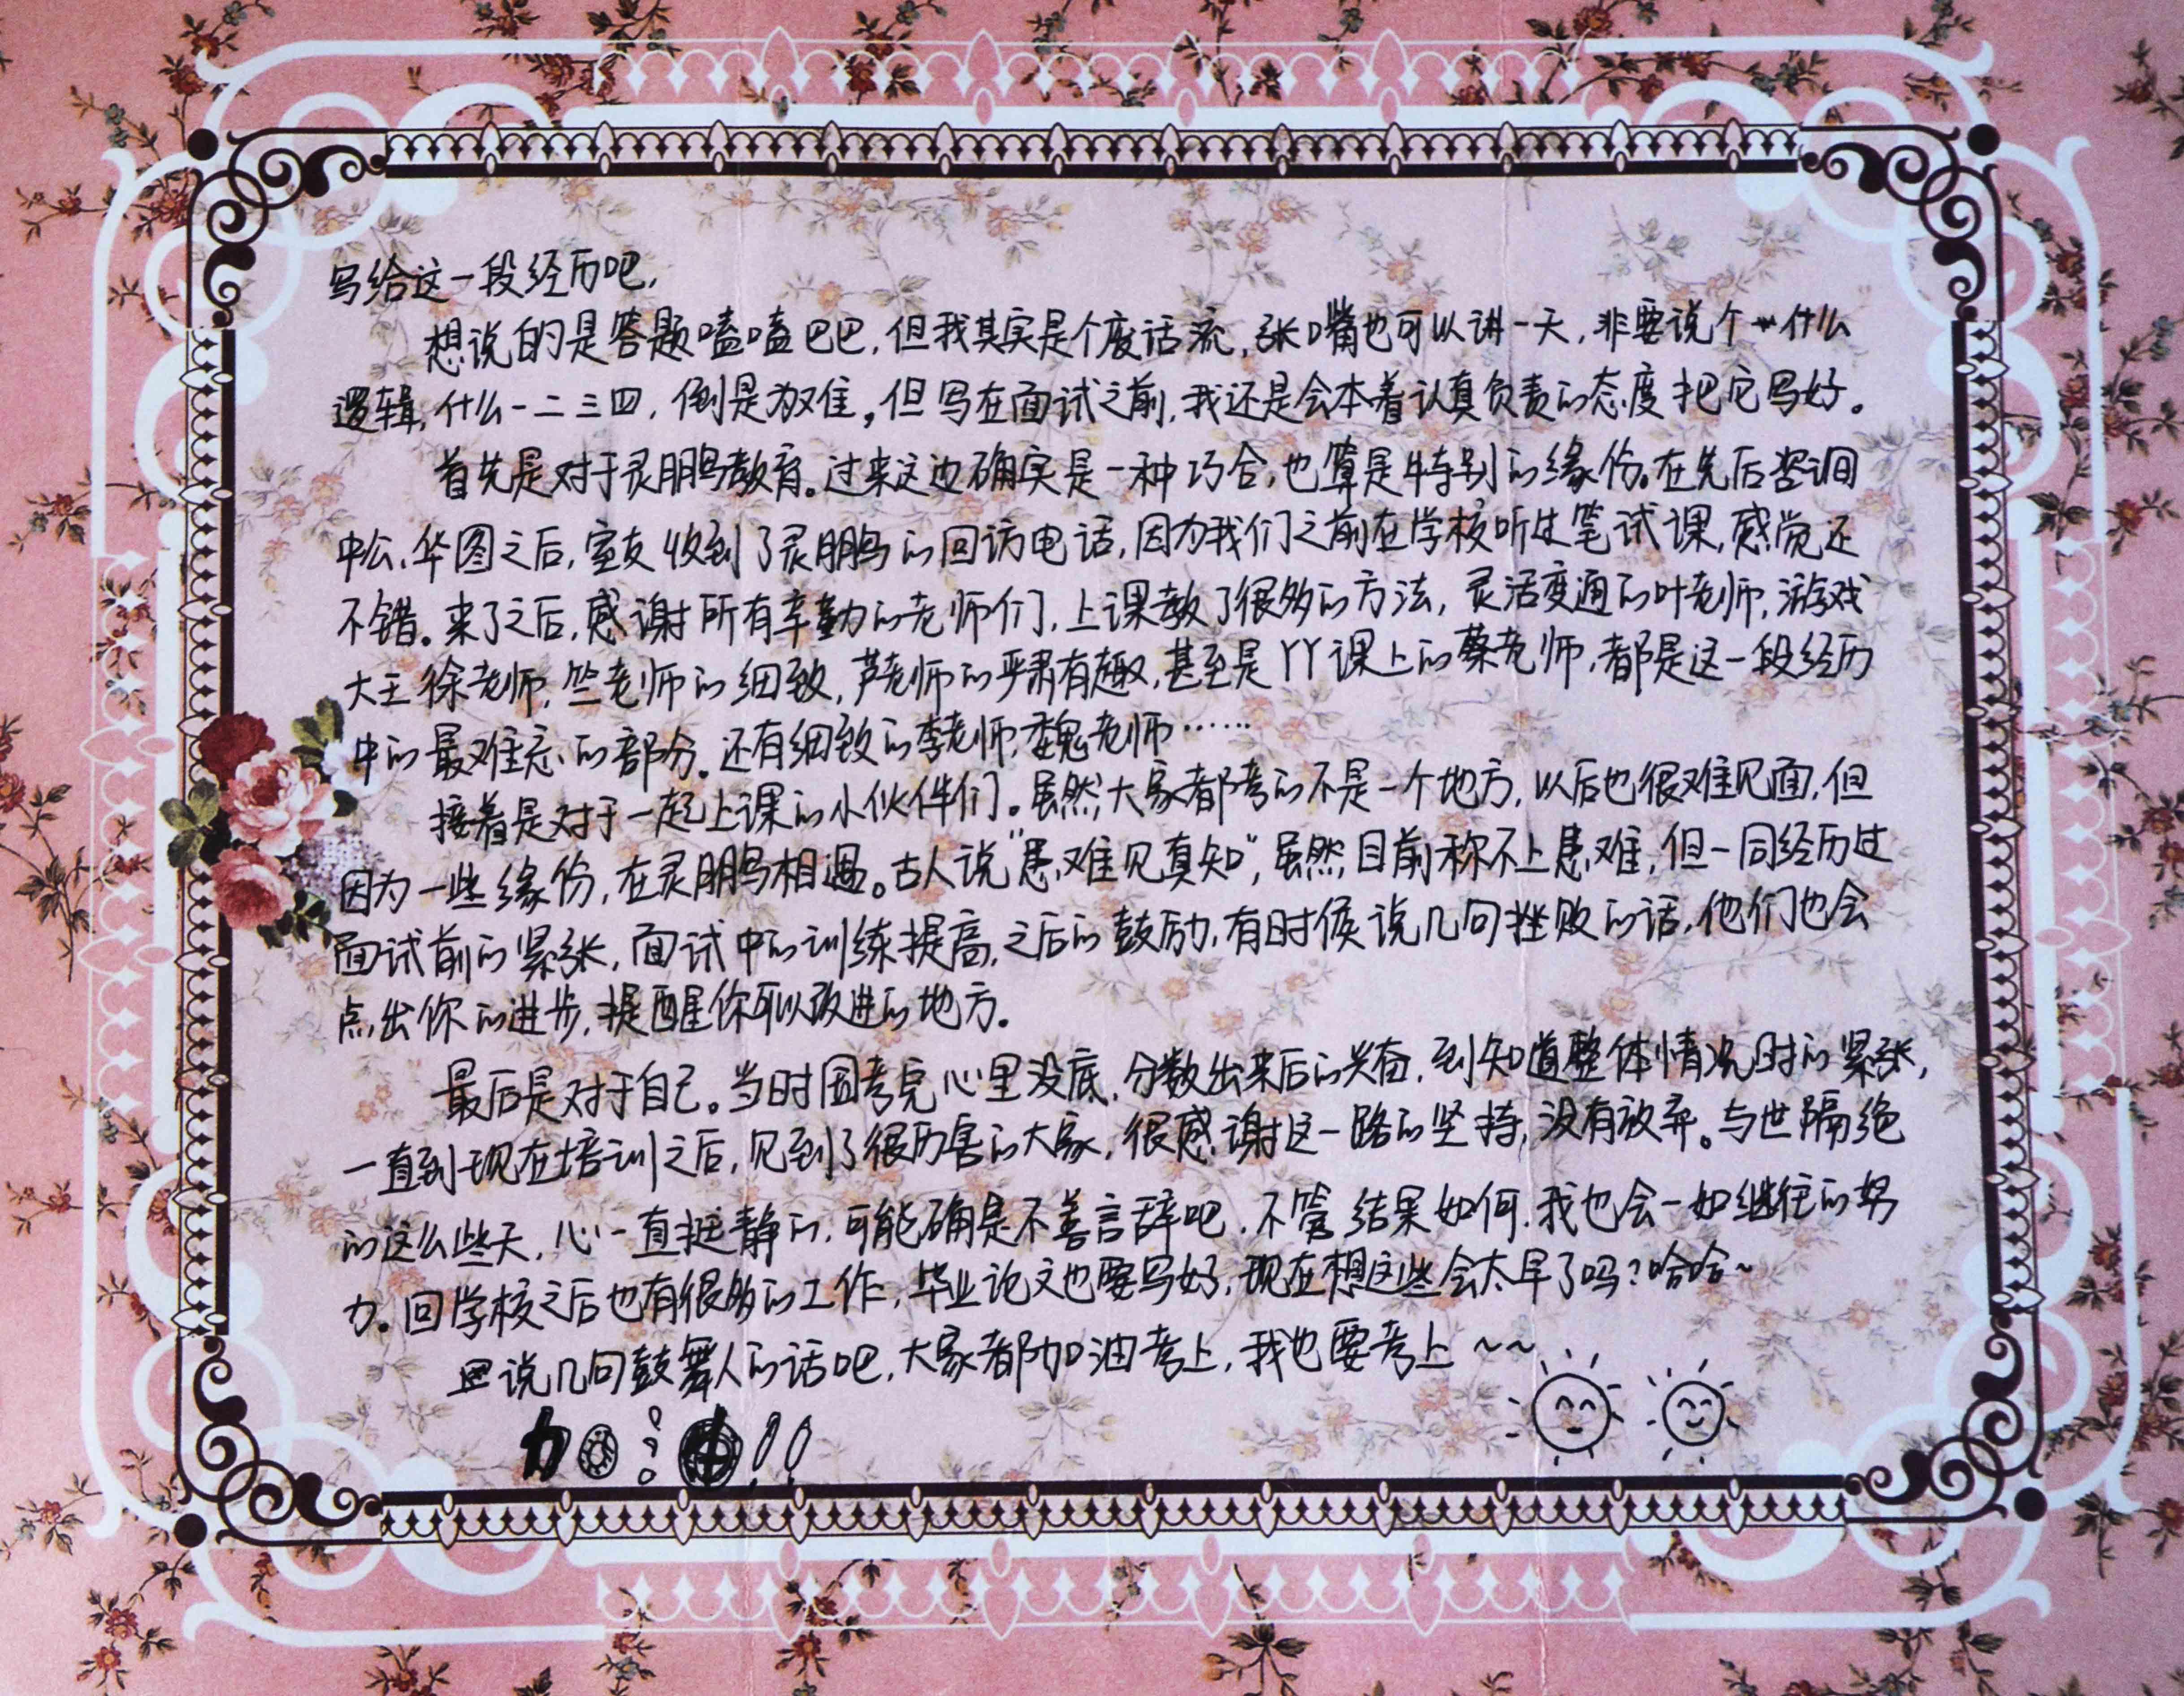 写给这一段经历吧,
想说的是答题嗑嗑巴巴,但我其实是个废话流,张口嘴也可以讲一天,非要说个什么
逻辑,什么一二三四,倒是为难。但写在面试之前,我还是会本着认真负责的态度把它写好。
首先是对于灵鹏鸟教育。过来这边确实是一种巧合,也算是特别的缘份。在先后咨询
中公、华图之后,室友收到了灵鹏鸟的回访电话,因为我们之前在学校听过笔试课,感觉还
不错。来了之后,感谢所有辛勤的老师们,上课教了很多的方法,灵活变通的叶老师,游戏
大王徐老师,竺老师的细致,芦老师的严肃有趣,甚至是YY课上的蔡老师,都是这一段经历
中的最难忘的部分。还有细致的李老师,魏老师……
接着是对于一起上课的小伙伴们。虽然大家都考的不是一个地方,以后也很难见面,但
因为一些缘份,在灵鹏鸟相遇。古人说"患难见真知",虽然目前称不上患难,但一同经历过
面试前的紧张,面试中的训练提高,之后的鼓励,有时候说几句挫败的话,他们也会
点出你的进步,提醒你可以改进的地方。
最后是对于自己。当时国考完心里没底,分数出来后的兴奋,到知道整体情况时的紧张,
一直到现在培训之后,见到了很厉害的大家,很感谢这一路的坚持,没有放弃。与世隔绝
的这么些天,心一直挺静的,可能确是不善言辞吧,不管结果如何,我也会一如继往的努
力。回学校之后也有很多的工作,毕业论文也要写好,现在想这些会太早了吗?哈哈~
说几句鼓舞人的话吧,大家都加油考上,我也要考上~~
加油!!